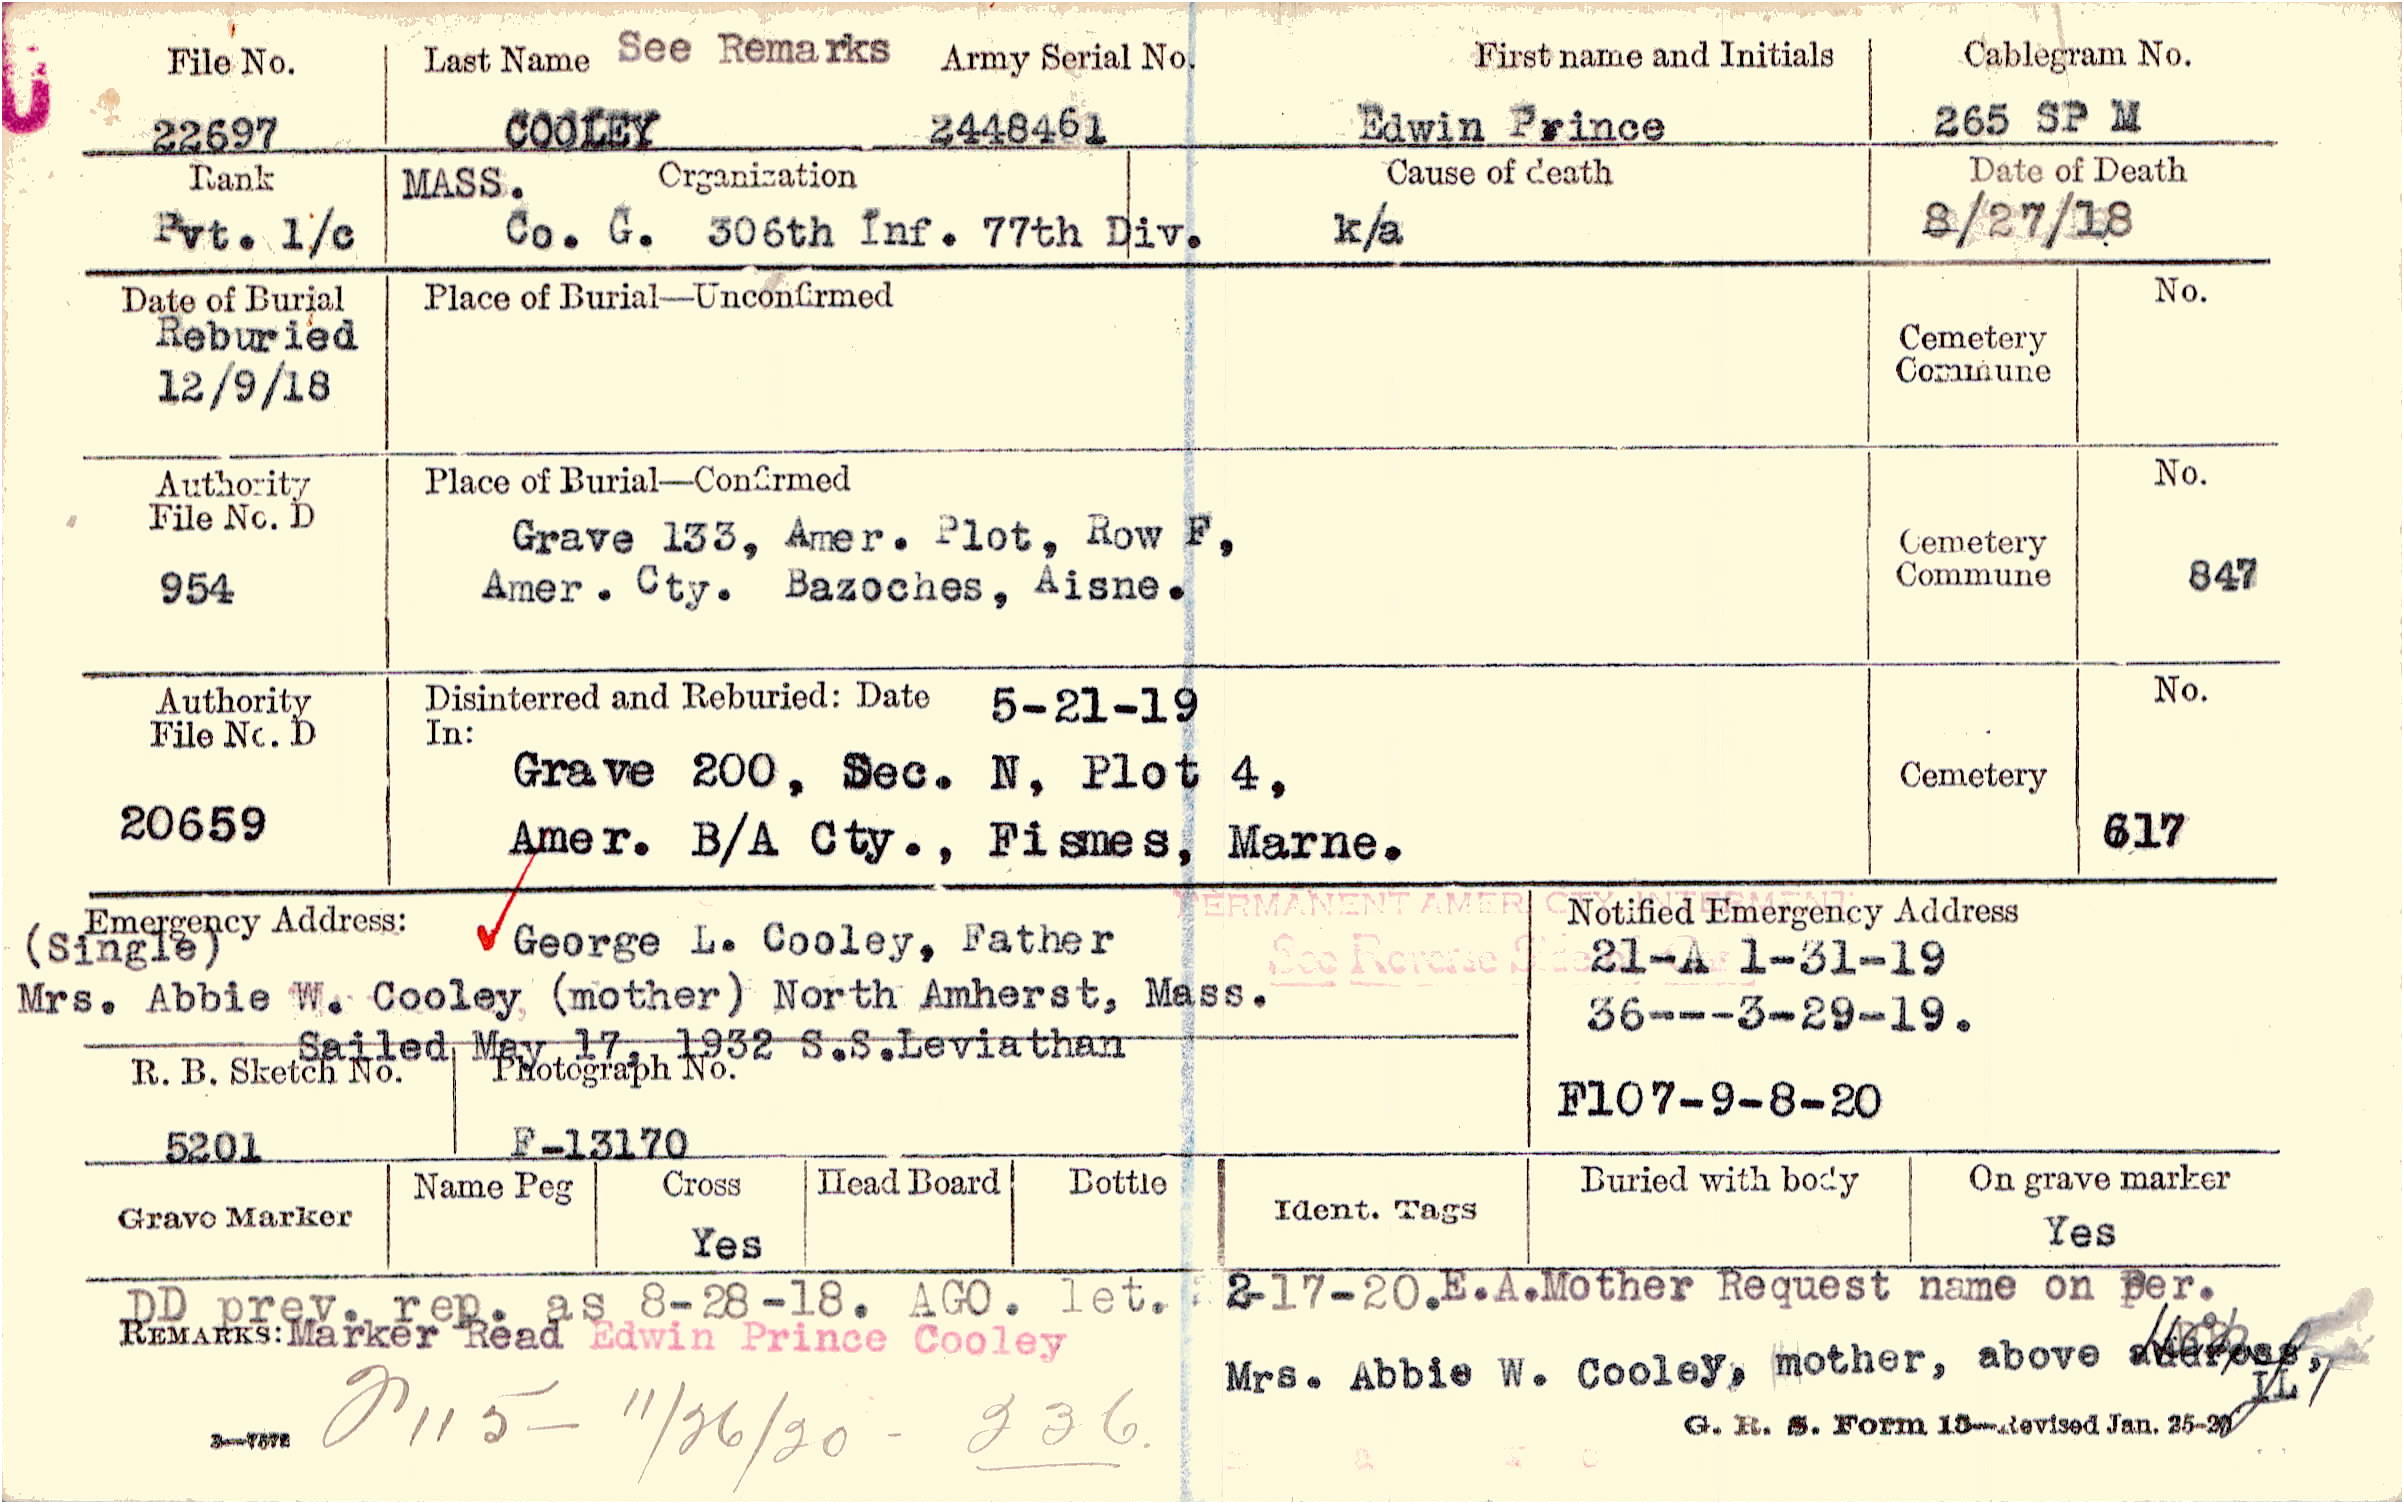 File No. Last Name See Remarks Army Serial No. First name and Initials Cablegram No.
22697 COOLEY 2448461 Edwin Prince 265 SP M
Rank MASS. Organization Cause of death Date of Death
Pvt. 1/c Co. G. 306th Inf. 77th Div. k/a 8/27/18
Date of Burial Place of Burial—Unconfirmed No.
Reburied
12/9/18
Cemetery
Commune
Authority Place of Burial—Confirmed No.
File No. D
Grave 133, Amer. Plot, Row F,
Cemetery
954 Amer. Cty. Bazoches, Aisne. Commune 847
Authority Disinterred and Reburied: Date 5-21-19 No.
File No. D In:
Grave 200, Sec. N, Plot 4, Cemetery
20659 Amer. B/A Cty., Fismes, Marne. 617
PERMANENT AMER. CTY. INTERMENT
Emergency Address: Notified Emergency Address
(Single) George L. Cooley, Father See Reverse Side 21-A 1-31-19
Mrs. Abbie W. Cooley (mother) North Amherst, Mass. 36---3-29-19.
Sailed May 17, 1932 S.S.Leviathan
R. B. Sketch No. Photograph No.
F107-9-8-20
5201 F-13170
Grave Marker Name Peg Cross Head Board Bottle Ident. Tags Buried with body On grave marker
Yes Yes
DD prev. rep. as 8-28-18. AGO. let. 2-17-20. E.A.Mother Request name on Per.
REMARKS: Marker Read Edwin Prince Cooley
Mrs. Abbie W. Cooley, mother, above address,
IL
115- 11/26/20 - 236.
3—7572 G. R. S. Form 13—Revised Jan. 25-20